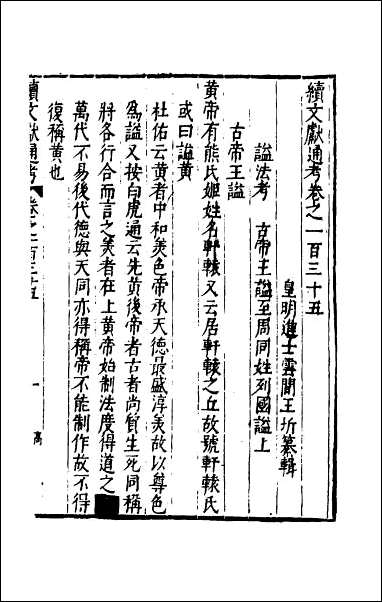 續文獻通考卷之一百三十五
皇明進士雲間王圻纂輯
謚法考 古帝王謚至周同姓列國謚上
古帝王謚
黃帝有熊氏姬姓名軒轅又云居軒轅之丘故號軒轅氏
或曰謚黃
杜佑云黃者中和美色帝承天德最盛淳美故以尊色
為謚又按白虎通云先黃後帝者古者尚質生死同稱
將各行合而言之美者在上黃帝始制法度得道之
萬代不易後代德與天同亦得稱帝不能制作故不得
復稱黃也
續文獻通考 卷之一百三十五 一 高